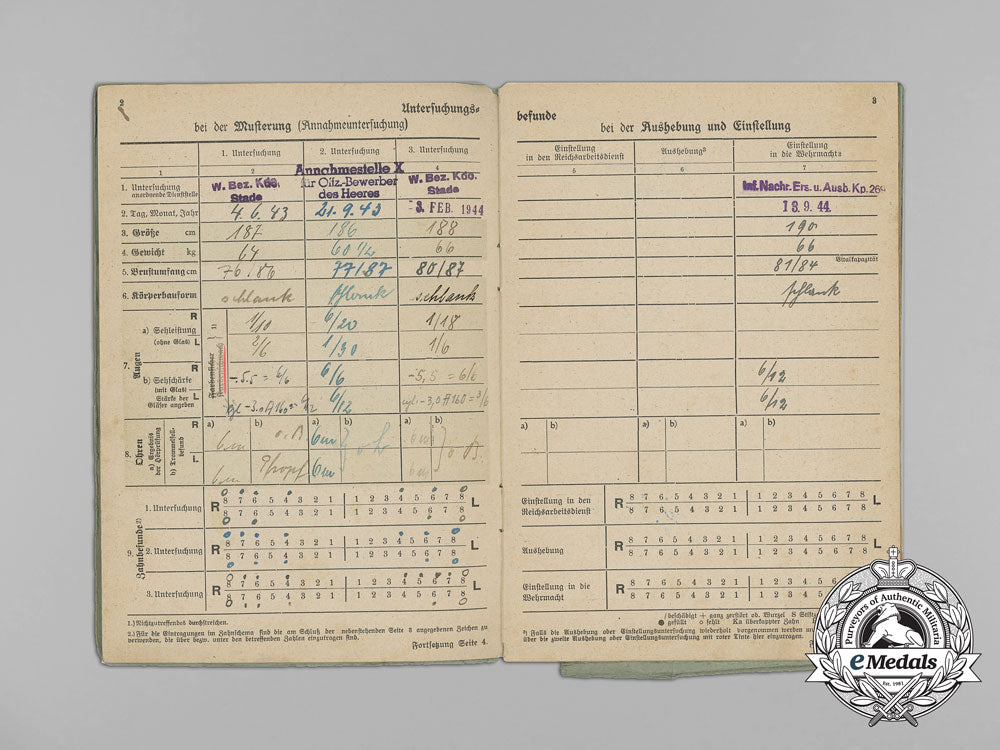 2
Untersuchungs-
bei der Musterung (Annahmeuntersuchung)
1. Untersuchung 2. Untersuchung 3. Untersuchung
1 2 4
1. Untersuchung anordnende Dienststelle
W. Bez. Kdo. Stade
Annahmestelle X
für Offz.-Bewerber
des Heeres
W. Bez. Kdo. Stade
2. Tag, Monat, Jahr 4.6.43 21.9.43 -3. FEB. 1944
3. Größe cm 187 186 188
4. Gewicht kg 64 60 1/2 66
5. Brustumfang cm 76/86 77/87 80/87
6. Körperbauform schlank schlank schlank
7. Augen
a) Sehleistung (ohne Glas)
R 1/10 6/20 1/18
L 2/6 1/30 1/6
b) Sehschärfe (mit Glas) Stärke der Gläser angeben
R -5,5 = 6/6 6/6 -5,5 = 6/6
L 6/12
8. Ohren
a) Ergebnis der Hörprüfung
b) Trommelfellbefund
a) b) a) b) a) b)
R 6m o.B. 6m 6m
L 6m Pfropf 6m 6m
9. Zahnbefunde 2)
1. Untersuchung
R 8 7 6 5 4 3 2 1 1 2 3 4 5 6 7 8 L
8 7 6 5 4 3 2 1 1 2 3 4 5 6 7 8
2. Untersuchung
R 8 7 6 5 4 3 2 1 1 2 3 4 5 6 7 8 L
8 7 6 5 4 3 2 1 1 2 3 4 5 6 7 8
3. Untersuchung
R 8 7 6 5 4 3 2 1 1 2 3 4 5 6 7 8 L
8 7 6 5 4 3 2 1 1 2 3 4 5 6 7 8
1.) Nichtzutreffendes durchstreichen.
2.) Für die Eintragungen im Zahnschema sind die am Schluß der nebenstehenden Seite 3 angegebenen Zeichen zu
verwenden, die über bezw. unter den betreffenden Zahlen einzutragen sind.
Fortsetzung Seite 4.
3
befunde
bei der Aushebung und Einstellung
Einstellung in den Reichsarbeitsdienst
Aushebung
Einstellung in die Wehrmacht
5 6 7
Inf. Nachr. Ers. u. Ausb. Kp. 269
13.9.44
190
66
81/84 Vitalkapazität
schlank
6/12
6/12
a) b) a) b) a) b)
Einstellung in den Reichsarbeitsdienst
R 8 7 6 5 4 3 2 1 1 2 3 4 5 6 7 8 L
8 7 6 5 4 3 2 1 1 2 3 4 5 6 7 8
Aushebung
R 8 7 6 5 4 3 2 1 1 2 3 4 5 6 7 8 L
8 7 6 5 4 3 2 1 1 2 3 4 5
Einstellung in die Wehrmacht
R 8 7 6 5 4 3 2 1 1 2 3 4 5
8 7 6 5 4 3 2 1 1 2 3 4 5
/ beschädigt + ganz zerstört od. Wurzel 8 Stift
● gefüllt o fehlt Ku überkappter Zahn
*) Falls die Aushebung oder Einstellungsuntersuchung wiederholt vorgenommen werden
über die zweite Aushebung oder Einstellungsuntersuchung mit roter Tinte hier einzutragen.
Purveyors of Authentic Militaria
eMedals
Est. 1981